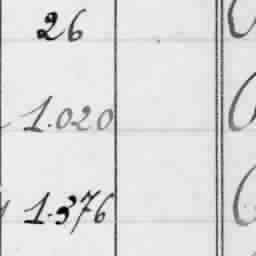 26
1.020
1.376